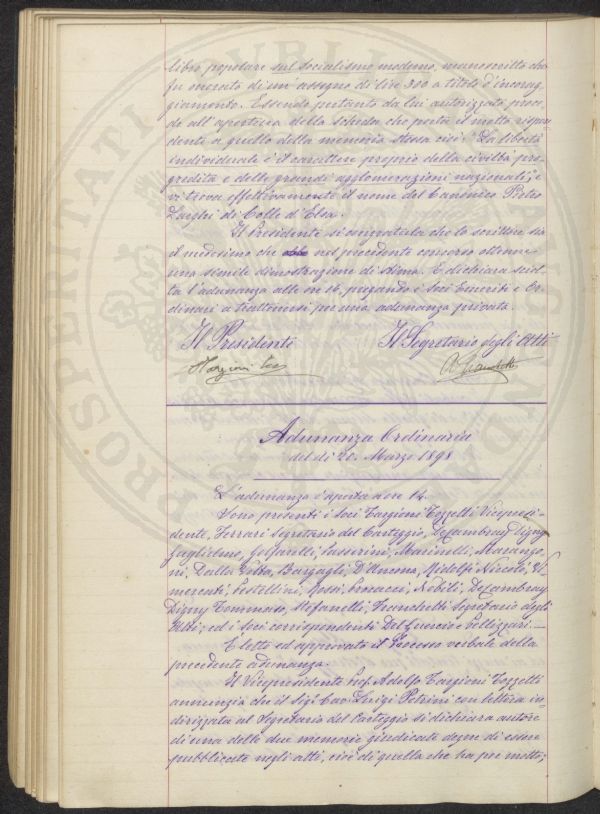 libro popolare sul socialismo moderno, manoscritto che
fu onorato di un' assegno di lire 300 a titolo d'incorag-
giamento. Essendo pertanto da lui autorizzato proce-
de all' apertura della scheda che porta il motto rispon-
dente a quello della memoria stessa cioè: "La libertà
individuale è il carattere proprio della civiltà pro-
gredita e delle grandi agglomerazioni nazionali; e
vi trova effettivamente il nome del Canonico Pietro
Larghi di Colle d'Elsa.
Il Presidente si congratula che lo scrittore sia
il medesimo che nel precedente concorso ottenne
una simile dimostrazione di stima. E dichiara sciol-
ta l'adunanza alle ore 16, pregando i Soci Emeriti e Or-
dinari a trattenersi per una adunanza privata.
Il Presidente Il Segretario degli Atti
Adunanza Ordinaria
del dì 20. Marzo 1898
L'adunanza è aperta a ore 14.
Sono presenti i Soci Targioni Tozzetti Vicepresi-
dente, Ferrari Segretario del Carteggio, De Cambray Digny
Guglielmo, Golfarelli, Passerini, Marinelli, Marango-
ni, Dalla Volta, Bargagli, D'Ancona, Ridolfi Niccolò, Vi-
mercati, Pestellini, Rossi, Procacci, Nobili, De Cambray
Digny Tommaso, Stefanelli, Franchetti Segretario degli
Atti; ed i Soci corrispondenti Del Guercio e Pellizzari. —
È letto ed approvato il Processo verbale della
precedente adunanza.
Il Vicepresidente Prof. Adolfo Targioni Tozzetti
annunzia che il Sig. Cav. Luigi Petrini con lettera in-
dirizzata al Segretario del Carteggio si dichiara autore
di una delle due memorie giudicate degne di essere
pubblicate negli atti, cioè di quella che ha per motto;
PROSPERITATI PVBLICAE AVGENDAE